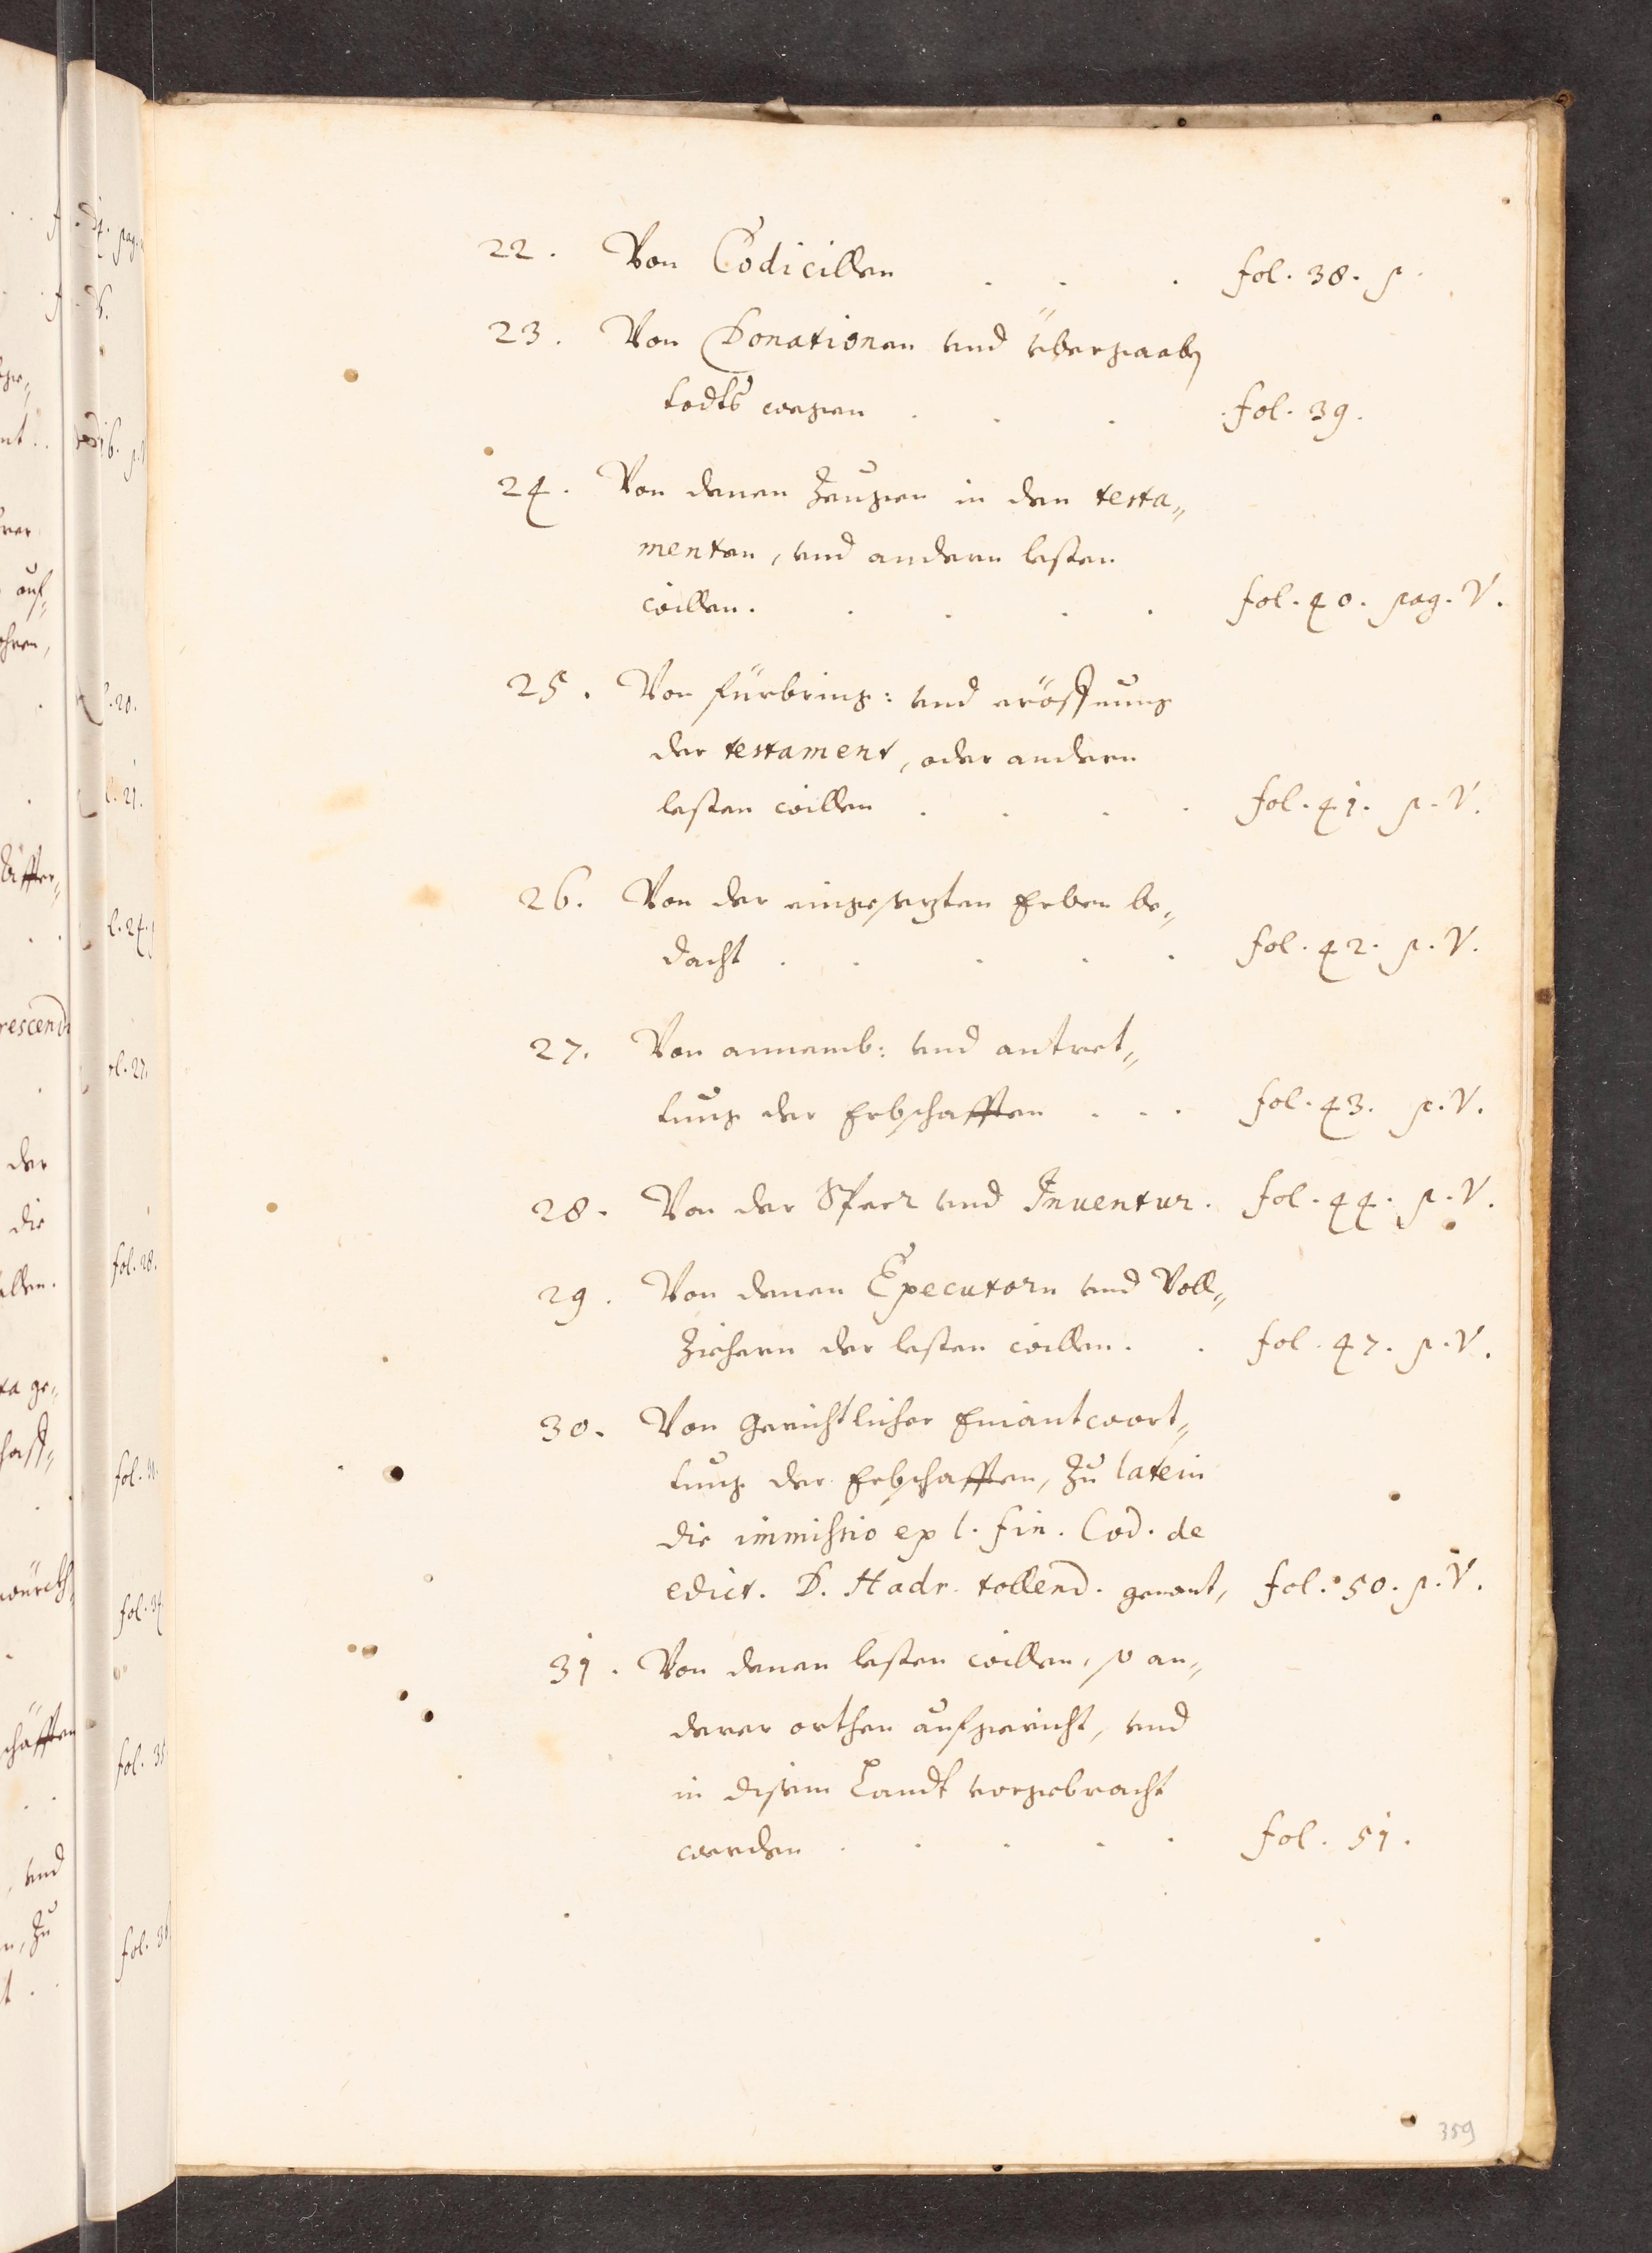 22. Von Codicillen . . . fol. 38. p.
23. Von Donationen und übergaaben
todts wegen . . . fol. 39.
24. Von denen Zeugen in den testa„
menten, und andern lesten
willen. . . . . fol. 40. pag. V.
25. Von fürbring: und eröffnung
der testament, oder andern
lesten willen . . . . fol. 41. p. V.
26. Von der eingesezten Erben be„
dacht . . . . . fol. 42. p. V.
27. Von annemb: und antret„
tung der Erbschafften . . . fol. 43. p. V.
28. Von der Sperr und Inventur. fol. 44. p. V.
29. Von denen Executorn und Voll„
Ziehern der lesten willen. . fol. 47. p. V.
30. Von Gerichtlicher Einantwort„
tung der Erbschafften, Zu latein
die immissio ex l. fin. Cod. de
edict. D. Hadr. tollend. genant, fol. 50. p. V.
31. Von denen lesten willen, so an„
derer orthen aufgericht, und
in disem Landt vorgebracht
werden . . . . . fol. 51.
359